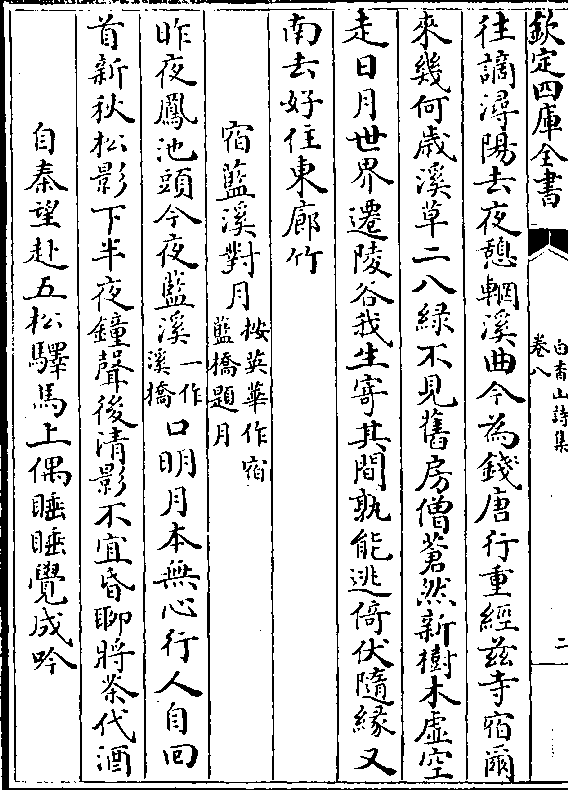 欽定四庫全書
白香山詩集
卷八
二
往謫潯陽去夜憩輞溪曲今為錢唐行重經兹寺宿爾
來幾何歲溪草二八緑不見舊房僧蒼然新樹木虛空
走日月世界遷陵谷我生寄其間孰能逃倚伏隨緣又
南去好住東廊竹
宿藍溪對月按英華作宿藍橋題月
昨夜鳳池頭今夜藍溪一作溪橋口明月本無心行人自回
首新秋松影下半夜鐘聲後清影不宜昏聊將茶代酒
自秦望赴五松驛馬上偶睡睡覺成吟